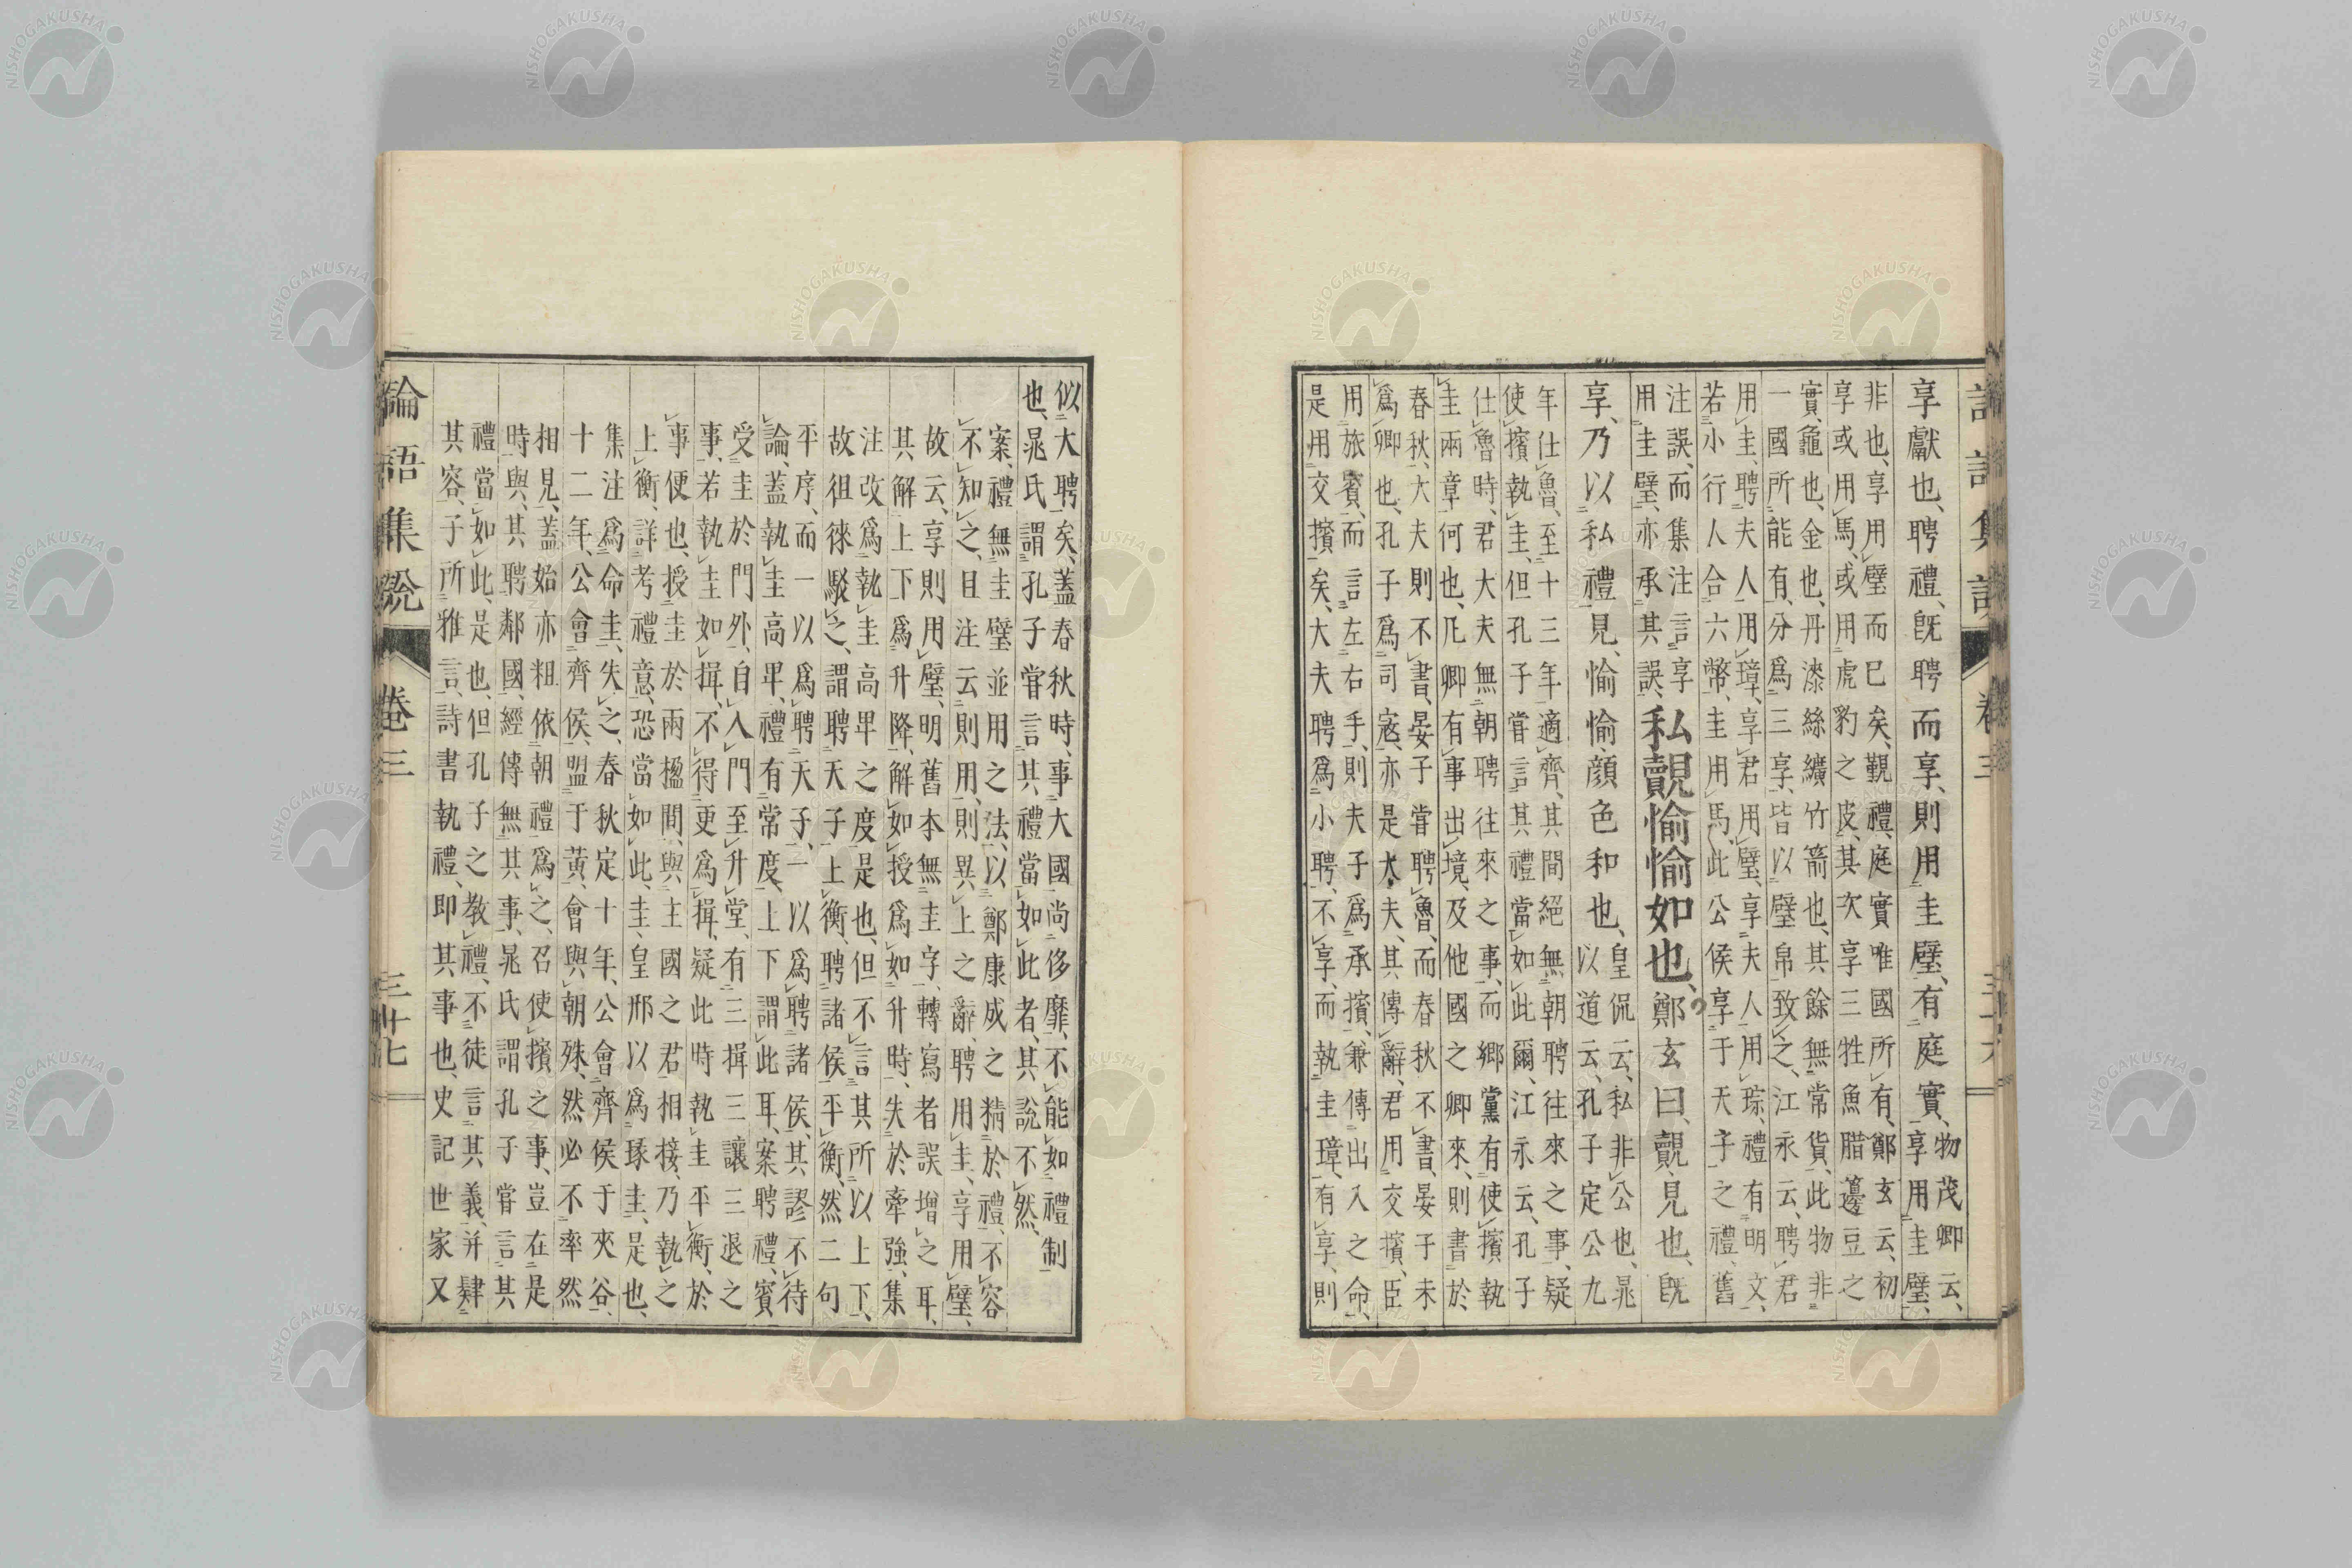 享獻也、聘禮、既聘而享、則用圭璧、有庭實、物茂卿云、
享用圭璧、
非也、享用璧而巳矣、覲禮、庭實唯國所有、鄭玄云、初
享或用馬、或用虎豹之皮、其次享三牲魚腊籩豆之
實、龜也、金也、丹漆絲纊竹箭也、其餘無常貨、此物非
一國所能有、分爲三享、皆以璧帛致之、江永云、聘君
用圭、聘夫人用璋、享君用璧、享夫人用琮、禮有明文、
若小行人合六幣、圭用馬、此公侯享于天子之禮、舊
注誤、而集注言享
用圭璧、亦承其誤、
私覿愉愉如也、鄭玄曰、覿見也、既
享、乃以私禮見、愉愉、顔色和也、皇侃云、私非公也、晁
以道云、孔子定公九
年仕魯、至十三年適齊、其間絕無朝聘往來之事、疑
使擯執圭、但孔子嘗言其禮當如此爾、江永云、孔子
仕魯時、君大夫無朝聘往來之事、而鄉黨有使擯執
圭兩章何也、凡卿有事出境、及他國之卿來、則書於
春秋、大夫則不書、晏子嘗聘魯、而春秋不書、晏子未
爲卿也、孔子爲司寇、亦是大夫、其傳辭、君用交擯、臣
用旅賓、而言左右手、則夫子爲承擯、兼傳出入之命、
是用交擯矣、大夫聘爲小聘、不享、而執圭璋、有享、則
似大聘矣、蓋春秋時、事大國尚侈靡、不能如禮制
也、晁氏謂孔子嘗言其禮當如此者、其說不然、
案、禮無圭璧並用之法、以鄭康成之精於禮、不容
不知之、且注云則用、則異上之辭、聘用圭、享用璧、
故云、享則用璧、明舊本無圭字、轉寫者誤增之耳、
其解上下爲升降、解如授爲如升時、失於牽強、集
注改爲執圭高卑之度是也、但不言其所以上下、
故徂徠駁之、謂聘天子上衡、聘諸侯平衡、然二句
平序、而一以爲聘天子、一以爲聘諸侯、其謬不待
論、蓋執圭高卑、禮有常度、上下謂此耳、案聘禮、賓
受圭於門外、自入門至升堂、有三揖三讓三退之
事、若執圭如揖、不得更爲揖、疑此時執圭平衡、於
事便也、授圭於兩楹間、與主國之君相接、乃執之
上衡、詳考禮意、恐當如此、圭、皇邢以爲瑑圭、是也、
集注爲命圭、失之、春秋定十年、公會齊侯于夾谷、
十二年、公會齊侯、盟于黃、會與朝殊、然必不率然
相見、蓋始亦粗依朝禮爲之、召使擯之事、豈在是
時與、其聘鄰國、經傳無其事、晁氏謂孔子嘗言其
禮當如此、是也、但孔子之教禮、不徒言其義、并肄
其容、子所雅言、詩書執禮、即其事也、史記世家又
論語集說 卷三 三十七